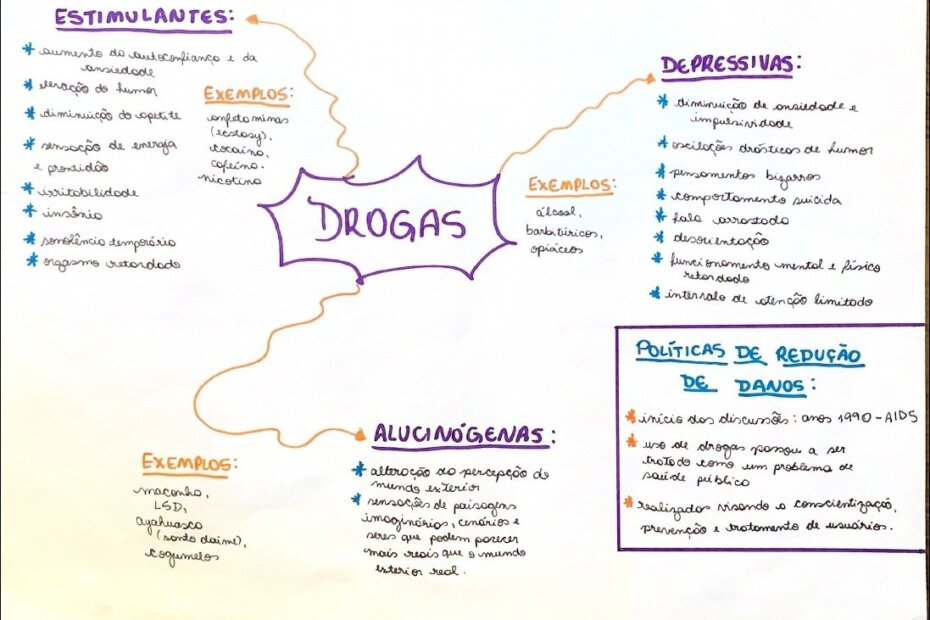 ESTIMULANTES:
* aumento da autoconfiança e da
ansiedade
* elevação do humor
* diminuição do apetite
* sensação de energia
e prontidão
* irritabilidade
* insônia
* sonolência temporária
* orgasmo retardado
EXEMPLOS:
anfetaminas
(ecstasy),
cocaína,
cafeína.
nicotina
DROGAS
DEPRESSIVAS:
* diminuição de ansiedade e
impulsividade
* oscilações drásticas de humor
* pensamentos bizarros
* comportamento suicida
* fala arrastada
* desorientação
* funcionamento mental e físico
retardado
* intervalo de atenção limitado
EXEMPLOS:
álcool,
barbitúricos,
opiáceos
ALUCINÓGENAS:
* alteração da percepção do
mundo exterior
* sensações de paisagens
imaginárias, cenários e
seres que podem parecer
mais reais que o mundo
exterior real.
EXEMPLOS:
maconha,
LSD,
ayahuasca
(santo daime),
cogumelos
POLÍTICAS DE REDUÇÃO
DE DANOS:
* início das discussões: anos 1990 - AIDS
* uso de drogas passou a ser
tratado como um problema de
saúde pública
* realizadas visando a conscientização,
prevenção e tratamento de usuários.